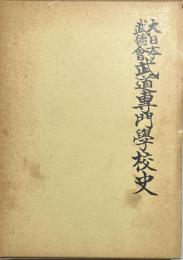 大日本
武徳會
武道專門學校史